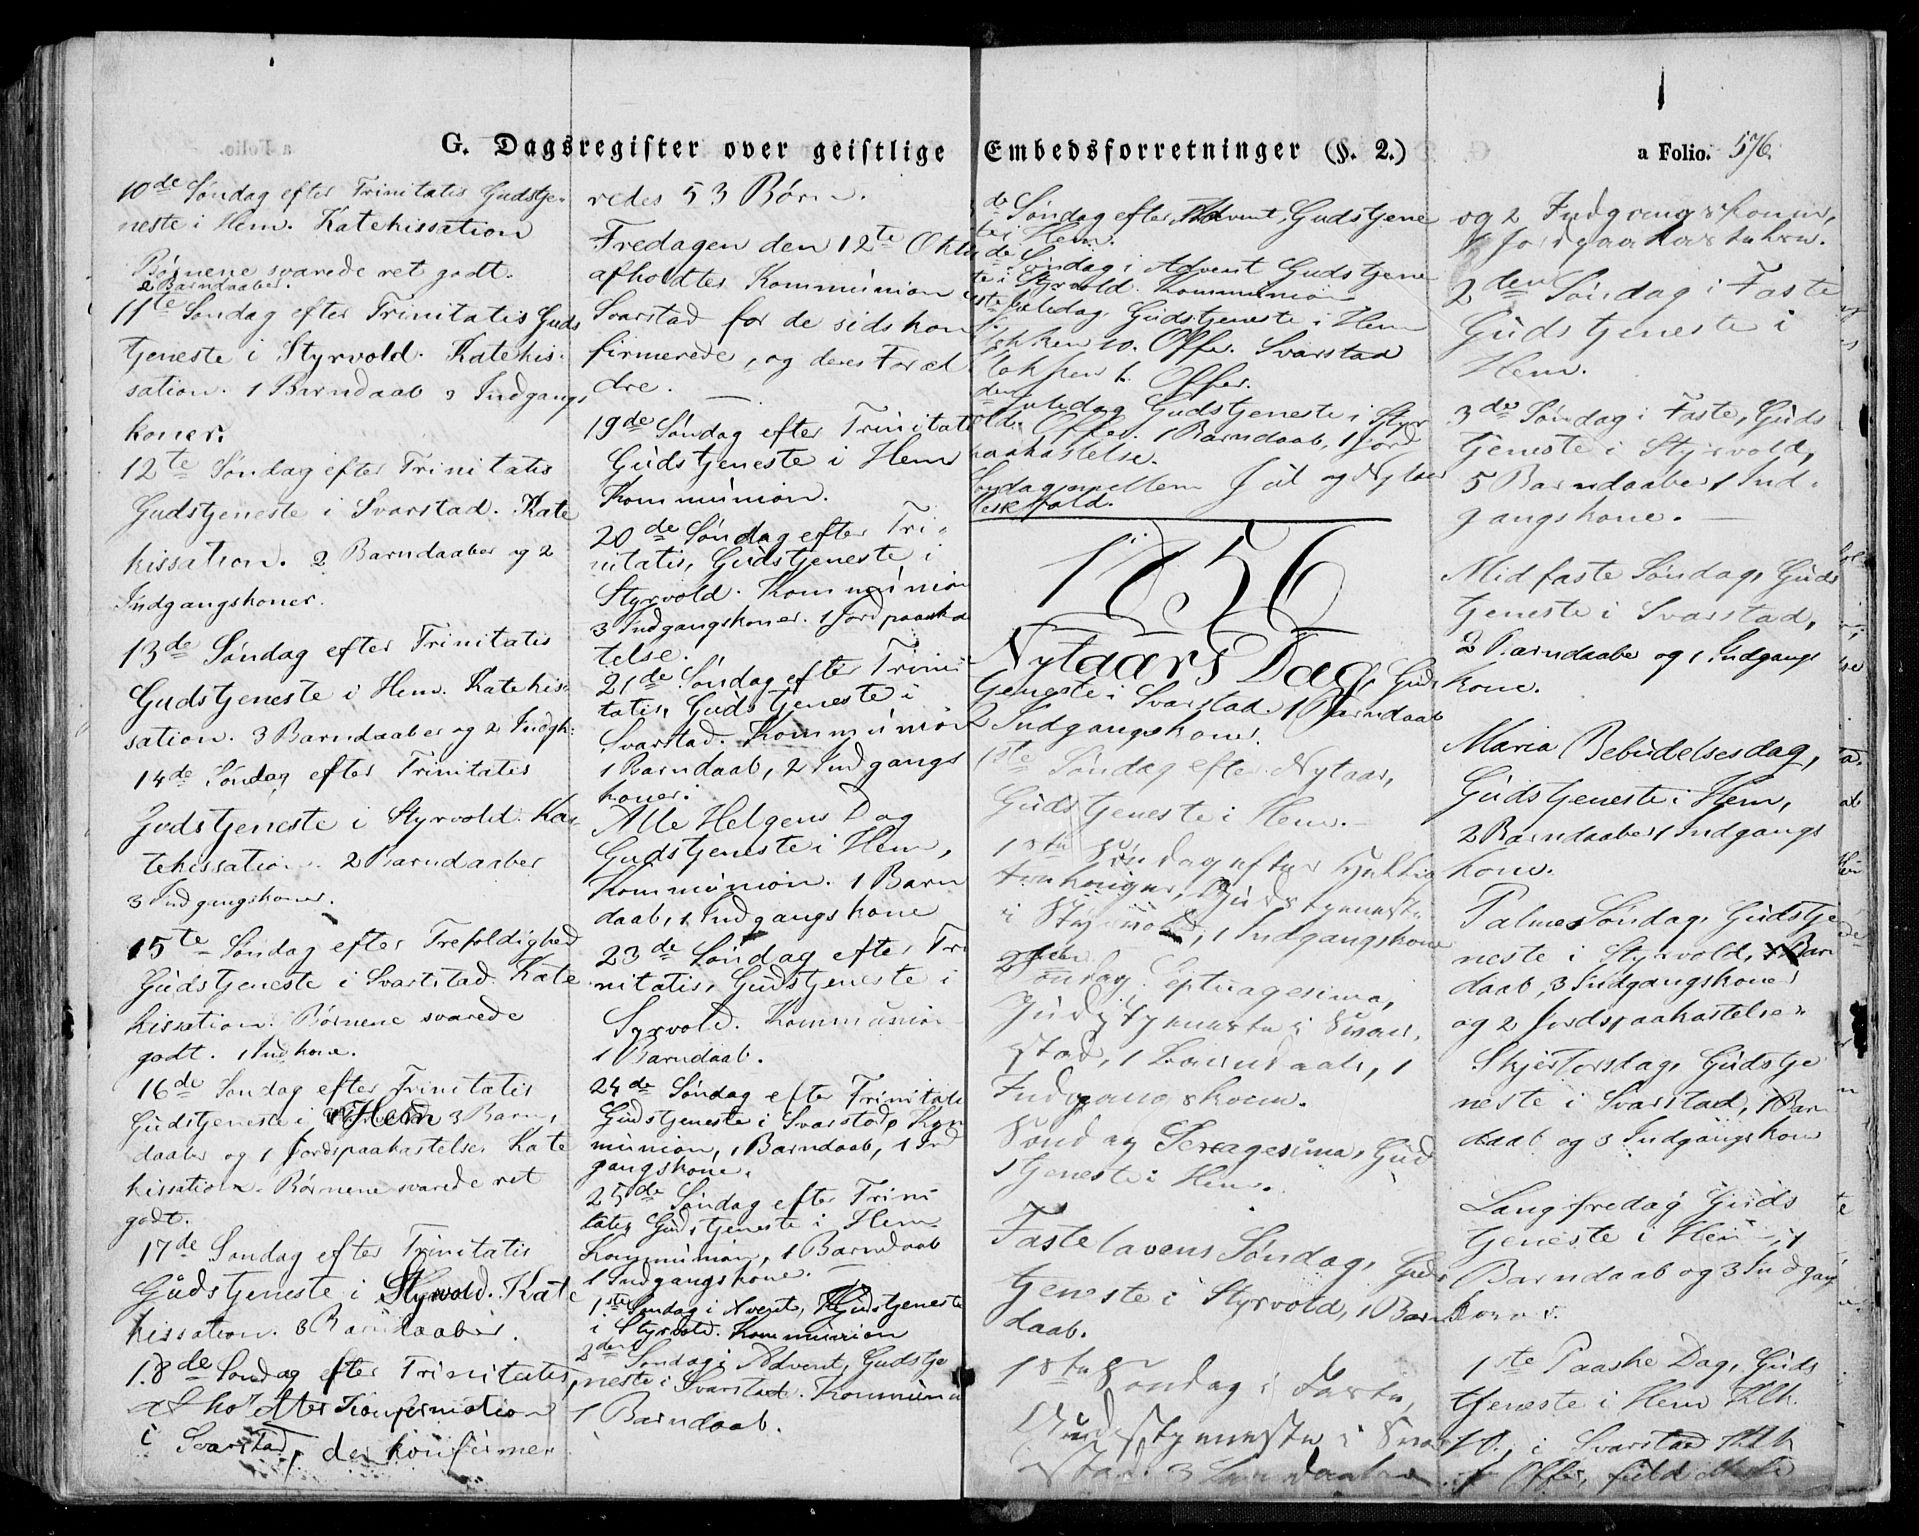 G. Dagsregister over geistlige Embedsforretninger (§. 2.)
a Folio. 576.
10de Søndag efter Trinitatis Gudstje-
neste i Hem. Katekissation
Børnene svarede ret godt.
2 Barndaaber.
11te Søndag efter Trinitatis Guds
tjeneste i Styrvold. Katekis-
sation. 1 Barndaab 3 Indgangs
koner.
12te Søndag efter Trinitatis
Gudstjeneste i Svarstad. Kate
kissation. 2 Barndaaber og 2
Indgangskoner.
13de Søndag efter Trinitatis
Gudstjeneste i Hem. Katekis-
sation. 3 Barndaaber og 2 Indgk:
14de Søndag efter Trinitatis
Gudstjeneste i Styrvold. Ka-
tekissation. 2 Barndaaber
3 Indgangskoner.
15te Søndag efter Trefoldighed
Gudstjeneste i Svartstad. Kate
kissation. Børnene svarede
godt. 1 Indkone.
16de Søndag efter Trinitatis
Gudstjeneste i Hem 3 Barn,
daaber og 1 Jordspaakastelse. Kate
kissation. Børnene svarede ret
godt.
17de Søndag efter Trinitatis
Gudstjeneste i Styrvold. Kate
kissation. 3 Barndaaber.
18de Søndag efter Trinitatis,
afholdtes Konfirmation
i Svarstad, der konfirme
redes 53 Børn.
Fredagen den 12te Oktb
afholdtes Kommunion
Svarstad for de sidskon
firmerede, og deres Foræl
dre.
19de Søndag efter Trinitati
Gudstjeneste i Hem
Kommunion.
20de Søndag efter Tri-
nitatis, Gudstjeneste i
Styrvold. Kommunion
3 Indgangskoner. 1 Jordpaaska
telse.
21de Søndag efter Trini
tatis, Gudstjeneste i
Svarstad. Kommunion
1 Barndaab, 2 Indgangs
koner.
Alle Helgens Dag
Gudstjeneste i Hem,
Kommunion. 1 Barn
daab, 1 Indgangskone
23de Søndag efter Tri
nitatis, Gudstjeneste i
Syrvold. Kommunion
1 Barndaab.
24de Søndag efter Trinitati
Gudstjeneste i Svarstad, Kom
munion, 1 Barndaab, 1 Ind
gangskone.
25de Søndag efter Trini
tatis Gudstjeneste i Hem
Kommunion, 1 Barndaab
1 Indgangskone.
1ste Søndag i Avent, Gudstjeneste
i Styrvold. Kommunion
2den Søndag i Advent, Gudstje
neste i Svarstad. Kommunio
1 Barndaab.
de Søndag efter Advent, Gudstjene
te i Hem.
de Søndag i Advent Gudstjene
te i Styrvold. Kommunion
ste Juledag Gudstjeneste i Hem
Klokken 10. Offer. Svarstad
Klokken Offer.
den Juledag Gudstjeneste i Styr
vold. Offer. 1 Barndaab, 1 Jord
paakastelse.
Søndag mellem Jul og Nytaar
Messefald.
1856
Nytaars Dag, Guds
tjeneste i Svarstad. 1 Barndaab
2 Indgangskoner.
1ste Søndag efter Nytaar,
Gudstjeneste i Hem.
1ste Søndag efter Hellig
trekonger, Gudstjeneste
i Styrvold, 1 Indgangskone
Søndag Septuagesima,
Gudstjeneste i Svar-
stad, 1 Barndaab, 1
Indgangskone.
Søndag Sexagesima, Gud
stjeneste i Hem.
Fastelavens Søndag, Guds
tjeneste i Styrvold, 1 Barn
daab.
1ste Søndag i Faste,
Gudstjeneste i Svar
stad. 3 Barndaaber
og 2 Indgangskoner,
1 Jordpaakastelse.
2den Søndag i Faste
Gudstjeneste i
Hem.
3de Søndag i Faste, Guds
tjeneste i Styrvold,
5 Barndaaber 1 Ind-
gangskone.
Midfaste Søndag, Guds
tjeneste i Svarstad,
2 Barndaaber og 1 Indgangs
kone.
Maria Bebudelsesdag,
Gudstjeneste i Hem,
2 Barndaaber 1 Indgangs
kone.
Palme Søndag, Gudstje
neste i Styrvold, Barn
daab, 3 Indgangskoner
og 2 Jordspaakastelser
Skjertorsdag, Gudstje
neste i Svarstad, 1 Barn
daab og 3 Indgangskone
Langfredag Guds
tjeneste i Hem, 1
Barndaab og 3 Indgang
koner.
1ste Paaske Dag, Guds
tjeneste i Hem Klk.
10, i Svarstad Klk
1 Offer, fuld Messe